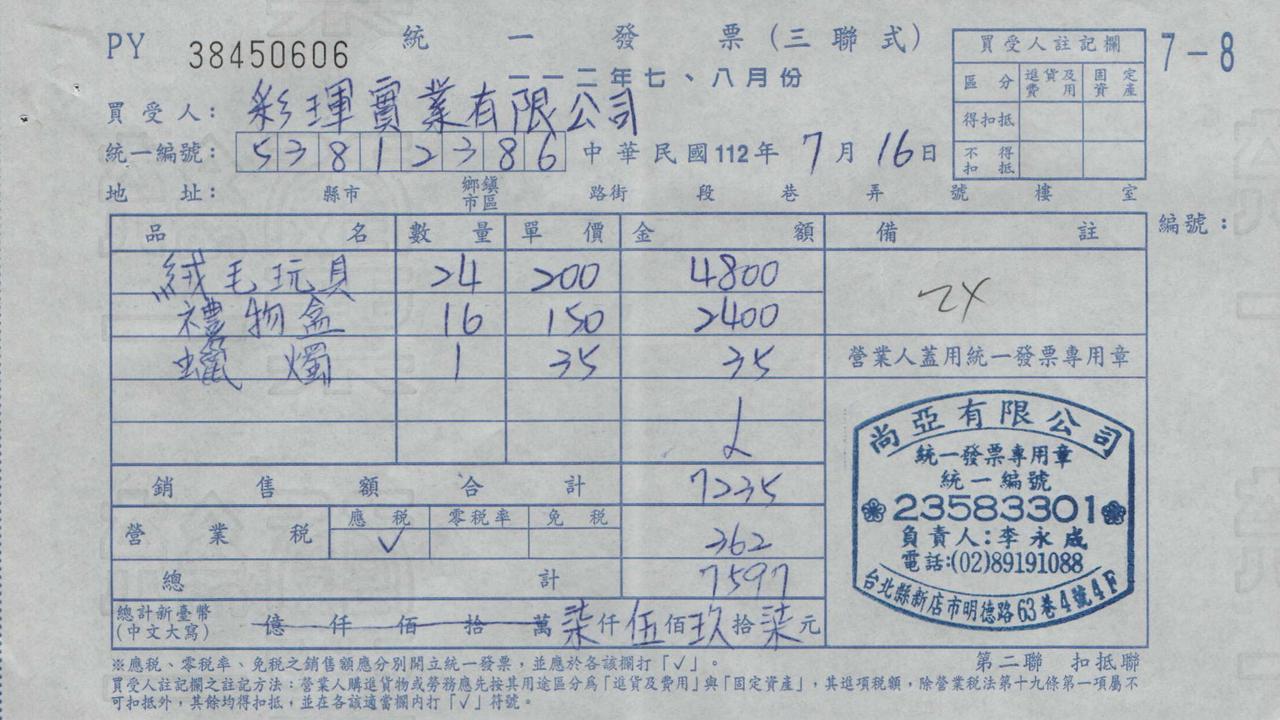 PY 38450606 統一發票(三聯式)
一一二年七、八月份
7-8
買受人註記欄
區分 進貨及費用 固定資產
得扣抵
不得扣抵
買受人: 彩琿實業有限公司
統一編號: 53812386 中華民國112年7月16日
地址: 縣市 鄉鎮市區 路街 段 巷 弄 號 樓 室
品名 數量 單價 金額 備註 編號:
絨毛玩具 24 200 4800
禮物盒 16 150 2400
蠟燭 1 35 35
營業人蓋用統一發票專用章
銷售額合計 7235
營業稅 應稅 零稅率 免稅
✓ 362
總計 7597
總計新臺幣(中文大寫) 億仟佰拾萬柒仟伍佰玖拾柒元
尚亞有限公司
統一發票專用章
統一編號
23583301
負責人:李永成
電話:(02)89191088
台北縣新店市明德路63巷4號4F
※應稅、零稅率、免稅之銷售額應分別開立統一發票,並應於各該欄打「✓」。
第二聯 扣抵聯
買受人註記欄之註記方法:營業人購進貨物或勞務應先按其用途區分為「進貨及費用」與「固定資產」,其進項稅額,除營業稅法第十九條第一項屬不
可扣抵外,其餘均得扣抵,並在各該適當欄內打「✓」符號。